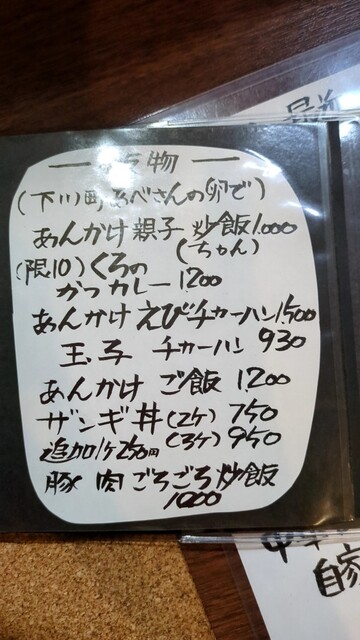 飯物
(下川町あべさんの卵で)
あんかけ親子炒飯1.000
(ちゃん)
(限10)くろの
かつカレー 1200
あんかけえびチャーハン1.500
玉子 チャーハン 930
あんかけ ご飯 1.200
ザンギ丼(2ケ) 750
追加1ケ250円 (3ケ) 950
豚肉ごろごろ炒飯
1000
自家